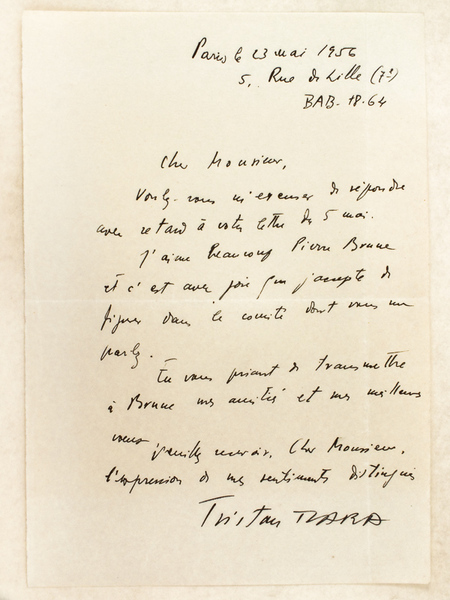 Paris le 23 mai 1956
5, Rue de Lille (7e)
BAB. 18-64
Cher Monsieur,
Voulez-vous m'excuser de répondre
avec retard à votre lettre du 5 mai.
J'aime beaucoup Pierre Brune
et c'est avec joie que j'accepte de
figurer dans le comité dont vous me
parlez.
En vous priant de transmettre
à Brune mes amitiés et mes meilleurs
vœux veuillez recevoir, Cher Monsieur,
l'expression de mes sentiments distingués
Tristan TZARA